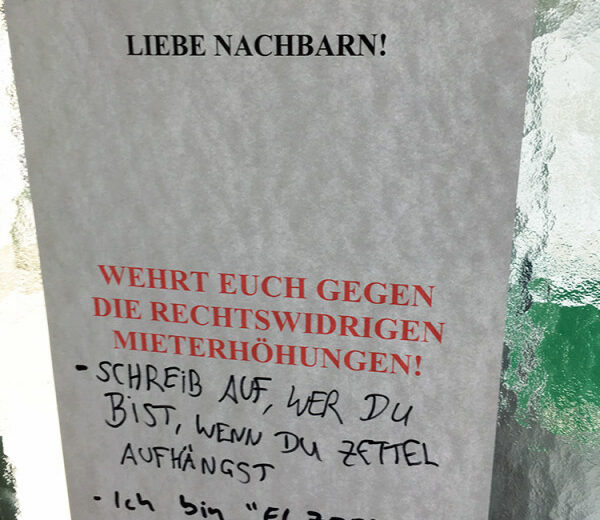 LIEBE NACHBARN!
WEHRT EUCH GEGEN
DIE RECHTSWIDRIGEN
MIETERHÖHUNGEN!
- SCHREIB AUF, WER DU
BIST, WENN DU ZETTEL
AUFHÄNGST
- Ich bin